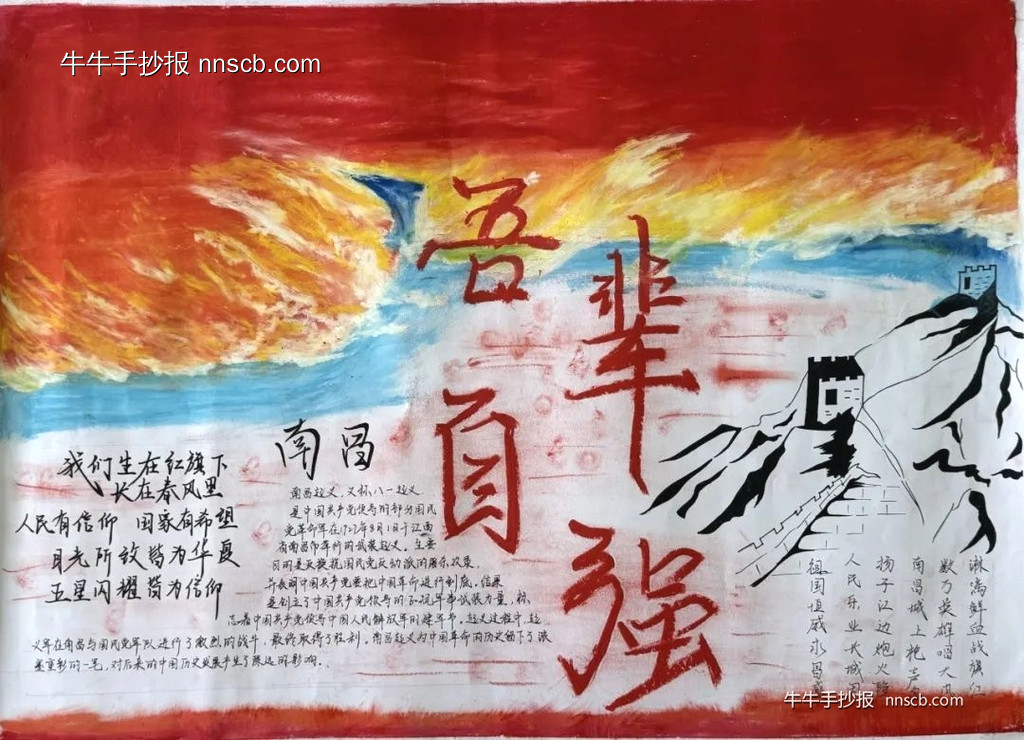 牛牛手抄报 nnscb.com
吾辈自强
南昌
我们生在红旗下
长在春风里
人民有信仰 国家有希望
目光所致皆为华夏
五星闪耀皆为信仰
南昌起义，又称八一起义
是中国共产党领导的部分国民
党革命军在1927年8月1日于江西
省南昌市举行的武装起义。主要
目的是反抗国民党反动派的屠杀政策，
并表明中国共产党要把中国革命进行到底。结果
是创立了中国共产党领导的
中国共产党领导与中国人民解放军的建军节。起义过程中，起
义军在南昌与国民党军队进行了激烈的战斗，最终取得了胜利，南昌起义为中国革命的历史留下了浓
墨重彩的一笔，对后来的中国历史发展产生了深远的影响。
淋漓鲜血战旗红
数万英雄唱大
南昌城上枪声
扬子江边炮火
人民乐业长城
祖国恒威永昌
牛牛手抄报 nnscb.com